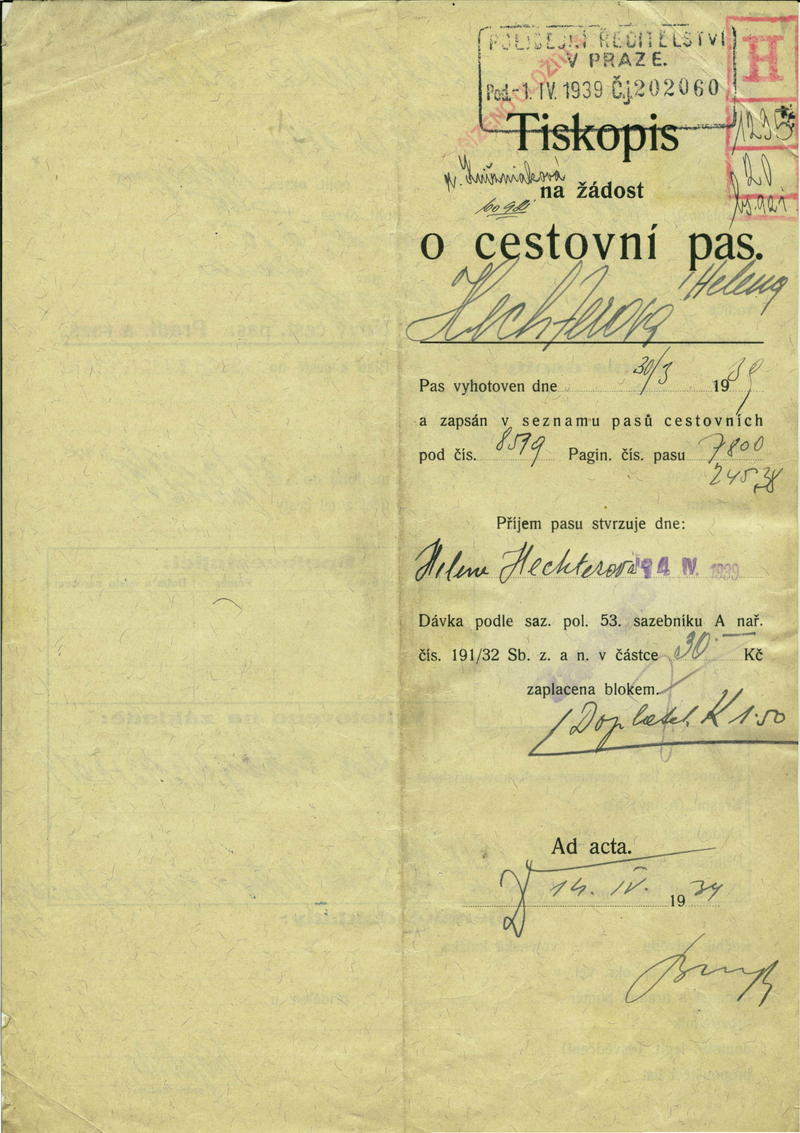 POLICEJNÍ ŘEDITELSTVÍ
V PRAZE.
Pod. -1. IV. 1939 Čj. 202060
H
Tiskopis
na žádost
20
o cestovní pas.
Hechterová Helena
Pas vyhotoven dne 30/3 1939
a zapsán v seznamu pasů cestovních
pod čís. 8599 Pagin. čís. pasu 7800
24538
Příjem pasu stvrzuje dne:
Helene Hechterová 14 IV. 1939
Dávka podle saz. pol. 53. sazebníku A nař.
čís. 191/32 Sb. z. a n. v částce 30.— Kč
zaplacena blokem.
Doplatek K 1.50
Ad acta.
14. IV. 1939